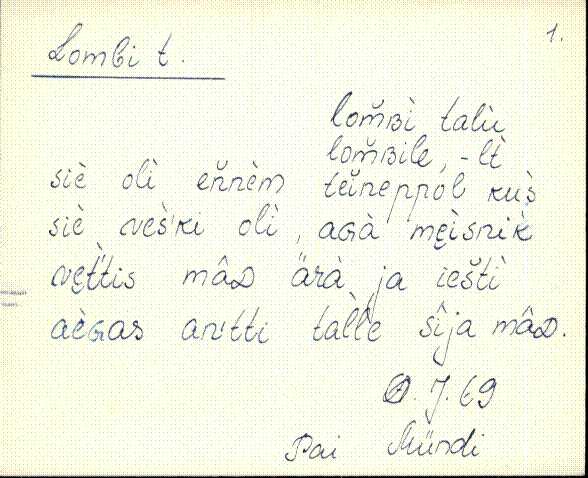 1.
Lombi t.
lom̆ʙì talù
lom̆ʙile, -lt̀
siè olì en̆nèm tĕìneppòl kuš̀
siè veš'ki olì, aɢà mę̀isnik̀
vęt̆tis mâᴅ ärà ja ieštì
aèɢas an'tti tal̆l̀e sîja mâᴅ.
J. 69
Pai Mündi